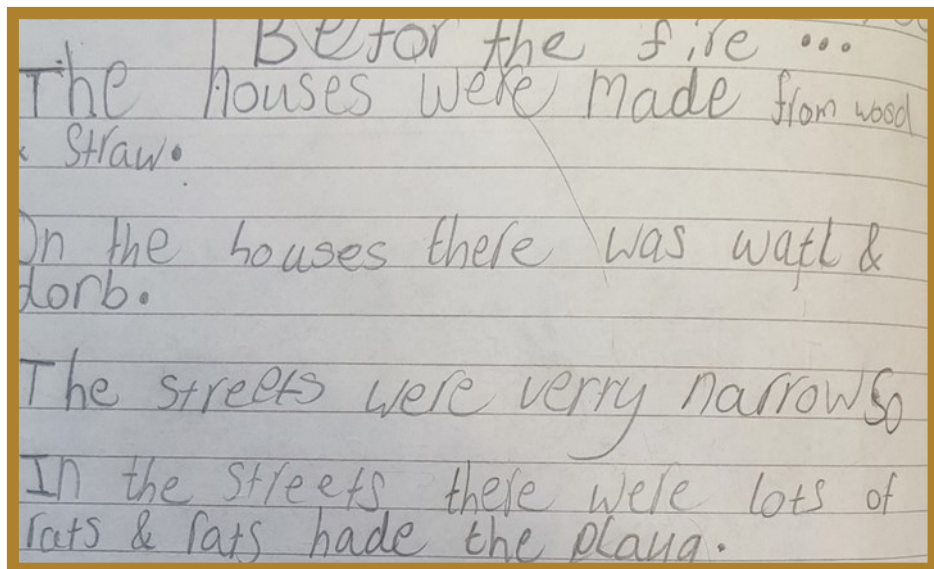 Befor the fire ...
The houses were made from wood
& straw.
On the houses there was watl &
dorb.
The streets were verry narrow so
In the streets there were lots of
rats & rats hade the plaug.